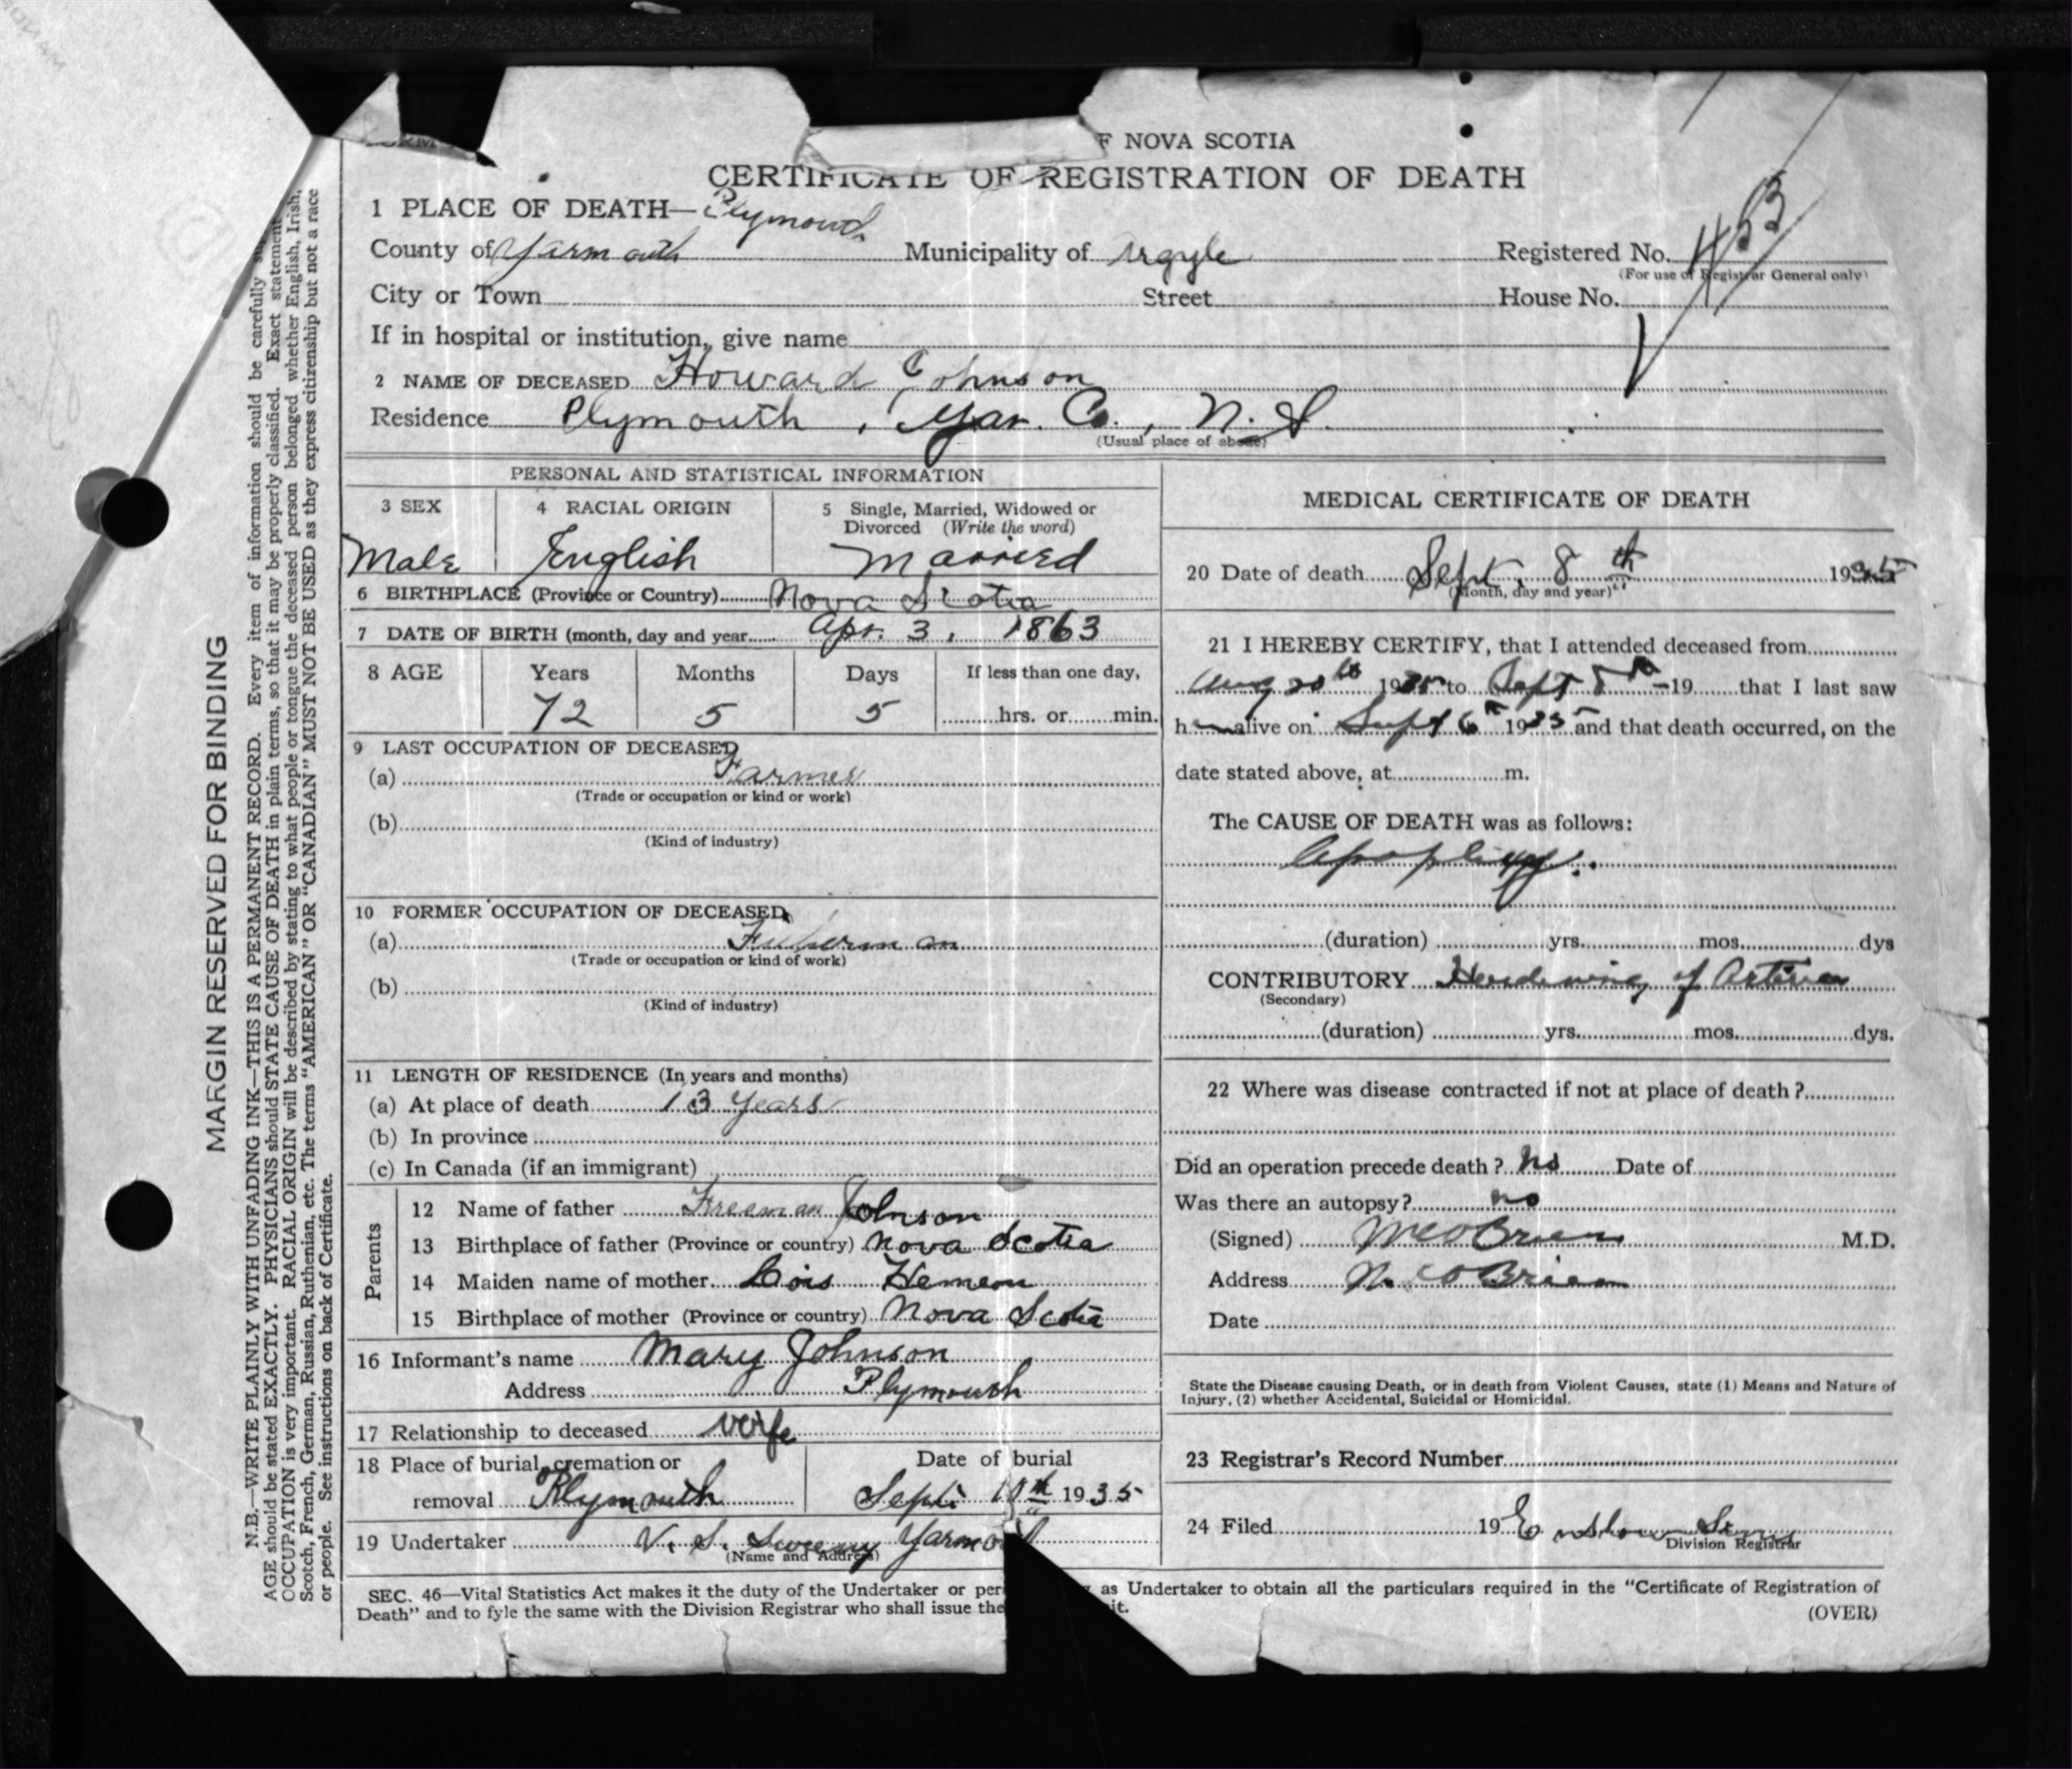 F NOVA SCOTIA
CERTIFICATE OF REGISTRATION OF DEATH
1 PLACE OF DEATH— Plymouth
County of Yarmouth Municipality of Argyle Registered No. 453
(For use of Registrar General only)
City or Town Street House No.
If in hospital or institution, give name
2 NAME OF DECEASED Howard Johnson
Residence Plymouth, Yar. Co., N. S.
(Usual place of abode)
PERSONAL AND STATISTICAL INFORMATION
3 SEX 4 RACIAL ORIGIN 5 Single, Married, Widowed or
Divorced (Write the word)
Male English Married
6 BIRTHPLACE (Province or Country) Nova Scotia
7 DATE OF BIRTH (month, day and year Apr. 3, 1863
8 AGE Years Months Days If less than one day,
72 5 5 hrs. or min.
9 LAST OCCUPATION OF DECEASED
(a) Farmer
(Trade or occupation or kind or work)
(b)
(Kind of industry)
10 FORMER OCCUPATION OF DECEASED
(a) Fisherman
(Trade or occupation or kind of work)
(b)
(Kind of industry)
11 LENGTH OF RESIDENCE (In years and months)
(a) At place of death 13 years
(b) In province
(c) In Canada (if an immigrant)
Parents
12 Name of father Freeman Johnson
13 Birthplace of father (Province or country) Nova Scotia
14 Maiden name of mother Lois Hemeon
15 Birthplace of mother (Province or country) Nova Scotia
16 Informant's name Mary Johnson
Address Plymouth
17 Relationship to deceased wife
18 Place of burial, cremation or Date of burial
removal Plymouth Sept. 10th 1935
19 Undertaker V. S. Sweeny Yarmouth
(Name and Address)
MEDICAL CERTIFICATE OF DEATH
20 Date of death Sept. 8th 1935
(Month, day and year)
21 I HEREBY CERTIFY, that I attended deceased from
Aug 20th 1935 to Sept 8th 19 that I last saw
him alive on Sept 6th 1935 and that death occurred, on the
date stated above, at m.
The CAUSE OF DEATH was as follows:
Apoplexy.
(duration) yrs. mos. dys
CONTRIBUTORY Hardening of Arteries
(Secondary)
(duration) yrs. mos. dys.
22 Where was disease contracted if not at place of death?
Did an operation precede death? No Date of
Was there an autopsy? no
(Signed) M C O'Brien M.D.
Address O'Brien
Date
State the Disease causing Death, or in death from Violent Causes, state (1) Means and Nature of
Injury, (2) whether Accidental, Suicidal or Homicidal.
23 Registrar's Record Number
24 Filed 19
Division Registrar
SEC. 46—Vital Statistics Act makes it the duty of the Undertaker or per as Undertaker to obtain all the particulars required in the "Certificate of Registration of
Death" and to fyle the same with the Division Registrar who shall issue the it.
(OVER)
MARGIN RESERVED FOR BINDING
N.B.—WRITE PLAINLY WITH UNFADING INK—THIS IS A PERMANENT RECORD. Every item of information should be carefully
AGE should be stated EXACTLY. PHYSICIANS should STATE CAUSE OF DEATH in plain terms, so that it may be properly classified. Exact statement
OCCUPATION is very important. RACIAL ORIGIN will be described by stating to what people or tongue the deceased person belonged whether English, Irish,
Scotch, French, German, Russian, Ruthenian, etc. The terms "AMERICAN" OR "CANADIAN" MUST NOT BE USED as they express citizenship but not a race
or people. See instructions on back of Certificate.